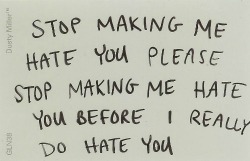 STOP MAKING ME
HATE YOU PLEASE
STOP MAKING ME HATE
YOU BEFORE I REALLY
DO HATE YOU
Dusty Miller™
GLN38